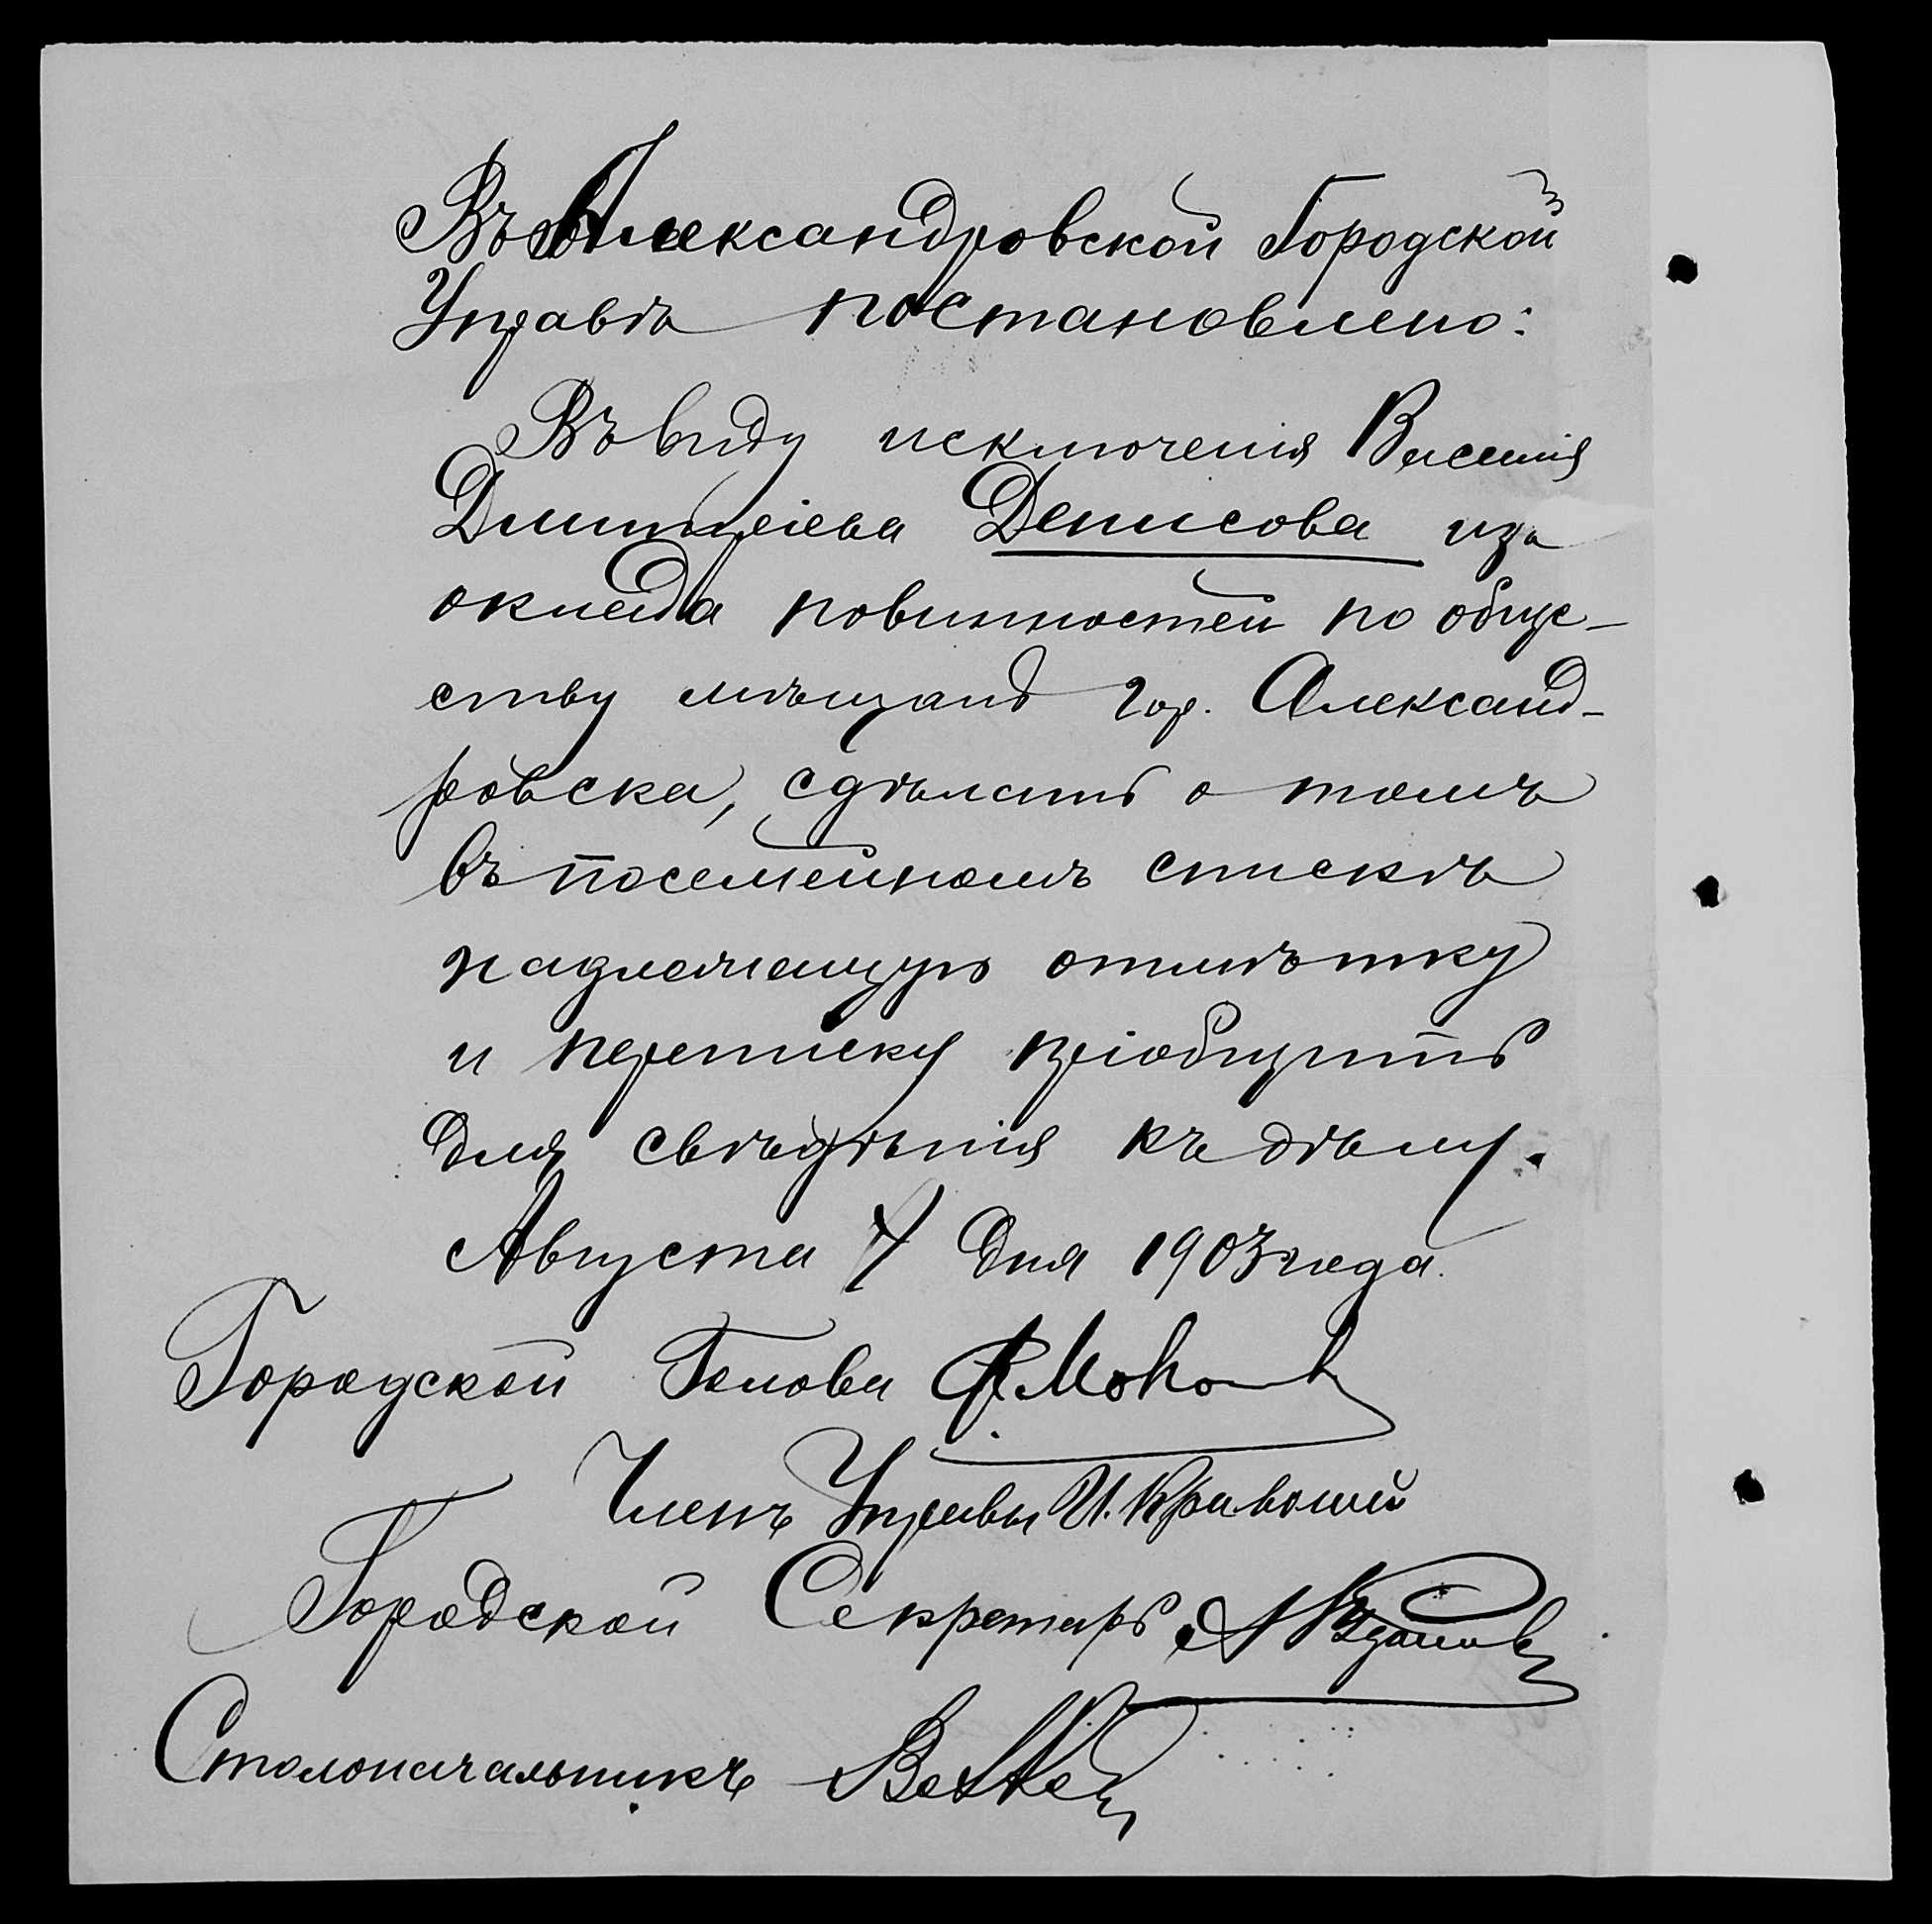 Въ Александровской Городской
Управѣ постановлено:
Въ виду исключенія Василія
Дмитріева Денисова изъ
оклада повинностей по обще-
ству мѣщанъ гор. Александ-
ровска, сдѣлать о томъ
въ посемейномъ спискѣ
надлежащую отмѣтку
и переписку пріобщить
для свѣдѣнія къ дѣлу.
Августа 7 дня 1903 года.
Городской Голова
Членъ Управы И. Кривошей
Городской Секретарь
Столоначальникъ